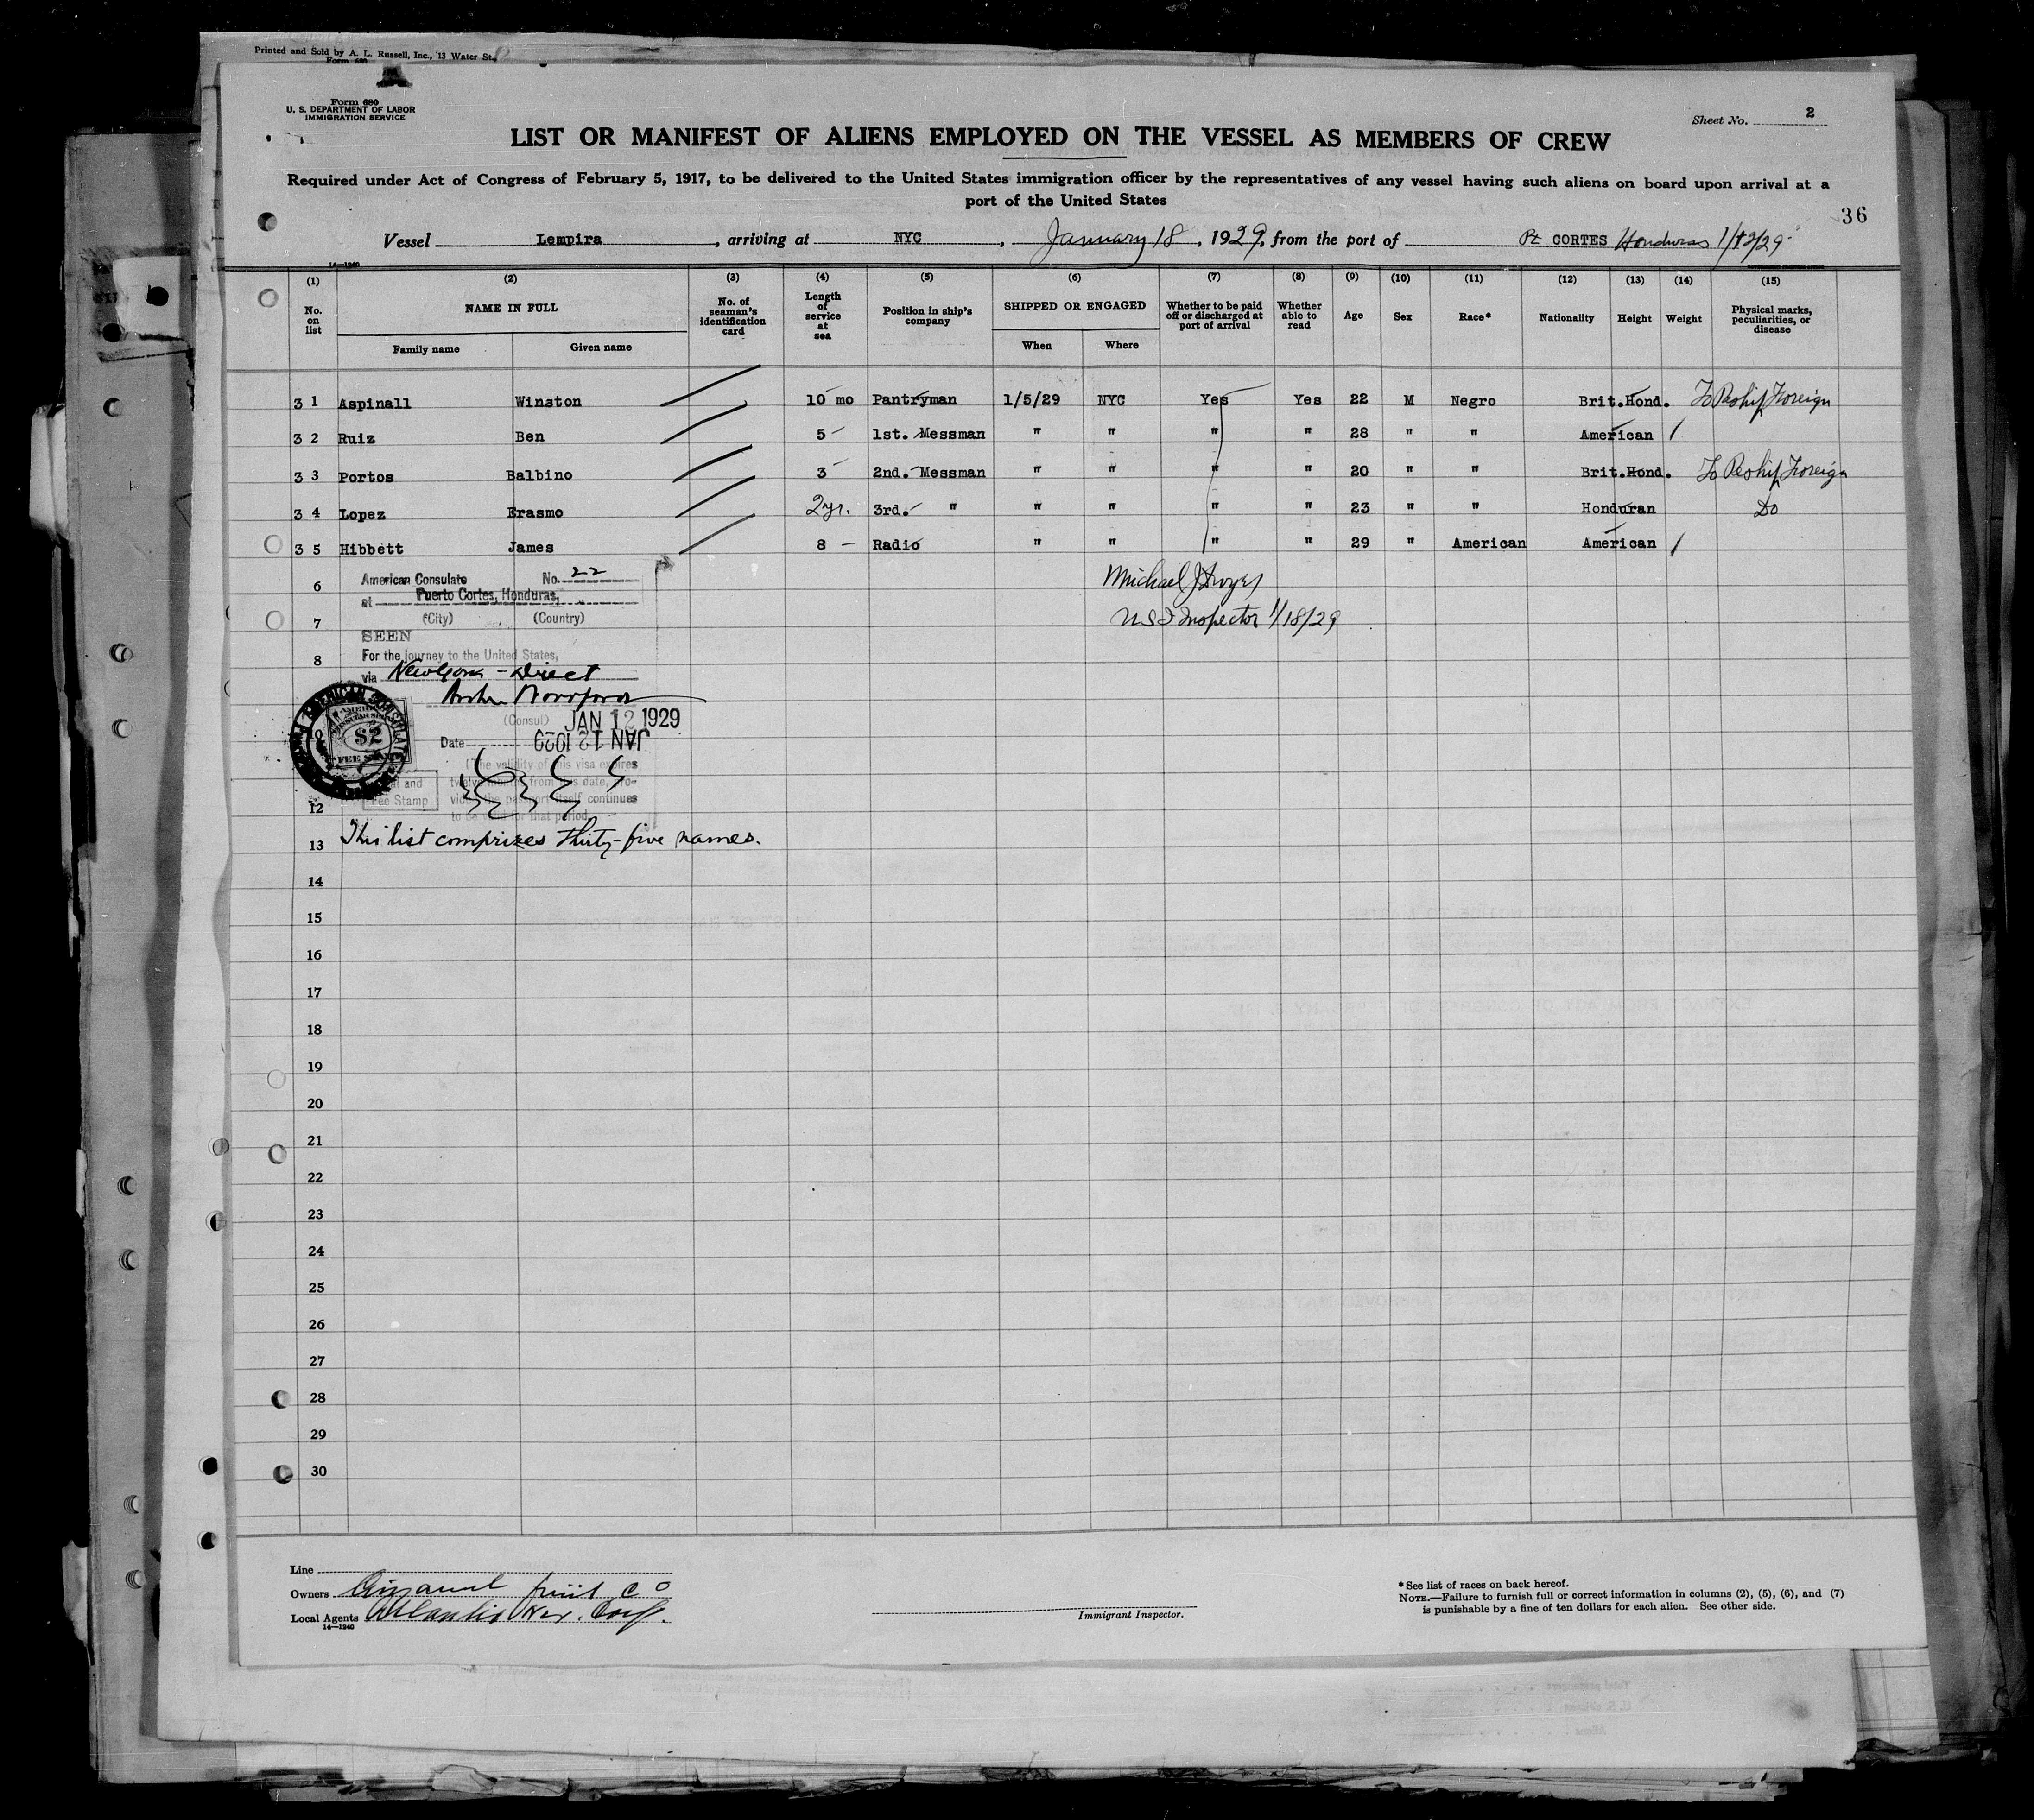 Printed and Sold by A. L. Russell, Inc., 13 Water St.,
Form 680
Form 680
U. S. DEPARTMENT OF LABOR
IMMIGRATION SERVICE
Sheet No. 2
LIST OR MANIFEST OF ALIENS EMPLOYED ON THE VESSEL AS MEMBERS OF CREW
Required under Act of Congress of February 5, 1917, to be delivered to the United States immigration officer by the representatives of any vessel having such aliens on board upon arrival at a
port of the United States
36
Vessel Lempira, arriving at NYC, January 18, 1929, from the port of Pt CORTES Honduras 1/12/29
14—1240
(1) (2) (3) (4) (5) (6) (7) (8) (9) (10) (11) (12) (13) (14) (15)
No. on list NAME IN FULL No. of seaman's identification card Length of service at sea Position in ship's company SHIPPED OR ENGAGED Whether to be paid off or discharged at port of arrival Whether able to read Age Sex Race* Nationality Height Weight Physical marks, peculiarities, or disease
Family name Given name When Where
31 Aspinall Winston 10 mo Pantryman 1/5/29 NYC Yes Yes 22 M Negro Brit.Hond. To Reship Foreign
32 Ruiz Ben 5 1st. Messman " " " " 28 " " American
33 Portos Balbino 3 2nd. Messman " " " " 20 " " Brit.Hond. To Reship Foreign
34 Lopez Erasmo 2yr. 3rd. " " " " " 23 " " Honduran Do
35 Hibbett James 8 Radio " " " " 29 " American American
6
American Consulate No. 22
at Puerto Cortes, Honduras,
(City) (Country)
Michael J
US I Inspector 1/18/29
7
SEEN
8
For the journey to the United States,
via New York - Direct
(Consul) JAN 12 1929
Date JAN 12 1929
(The validity of this visa expires
twelve months from this date, pro-
vided the passport itself continues
to be valid for that period.
AMERICAN CONSULATE
$2
FEE
Seal and
Fee Stamp
12
13 This list comprizes thirty-five names.
14
15
16
17
18
19
20
21
22
23
24
25
26
27
28
29
30
Line
Owners Cuyamel fruit Co
Local Agents Atlantic Nav. Corp.
14—1240
Immigrant Inspector.
* See list of races on back hereof.
NOTE.—Failure to furnish full or correct information in columns (2), (5), (6), and (7)
is punishable by a fine of ten dollars for each alien. See other side.